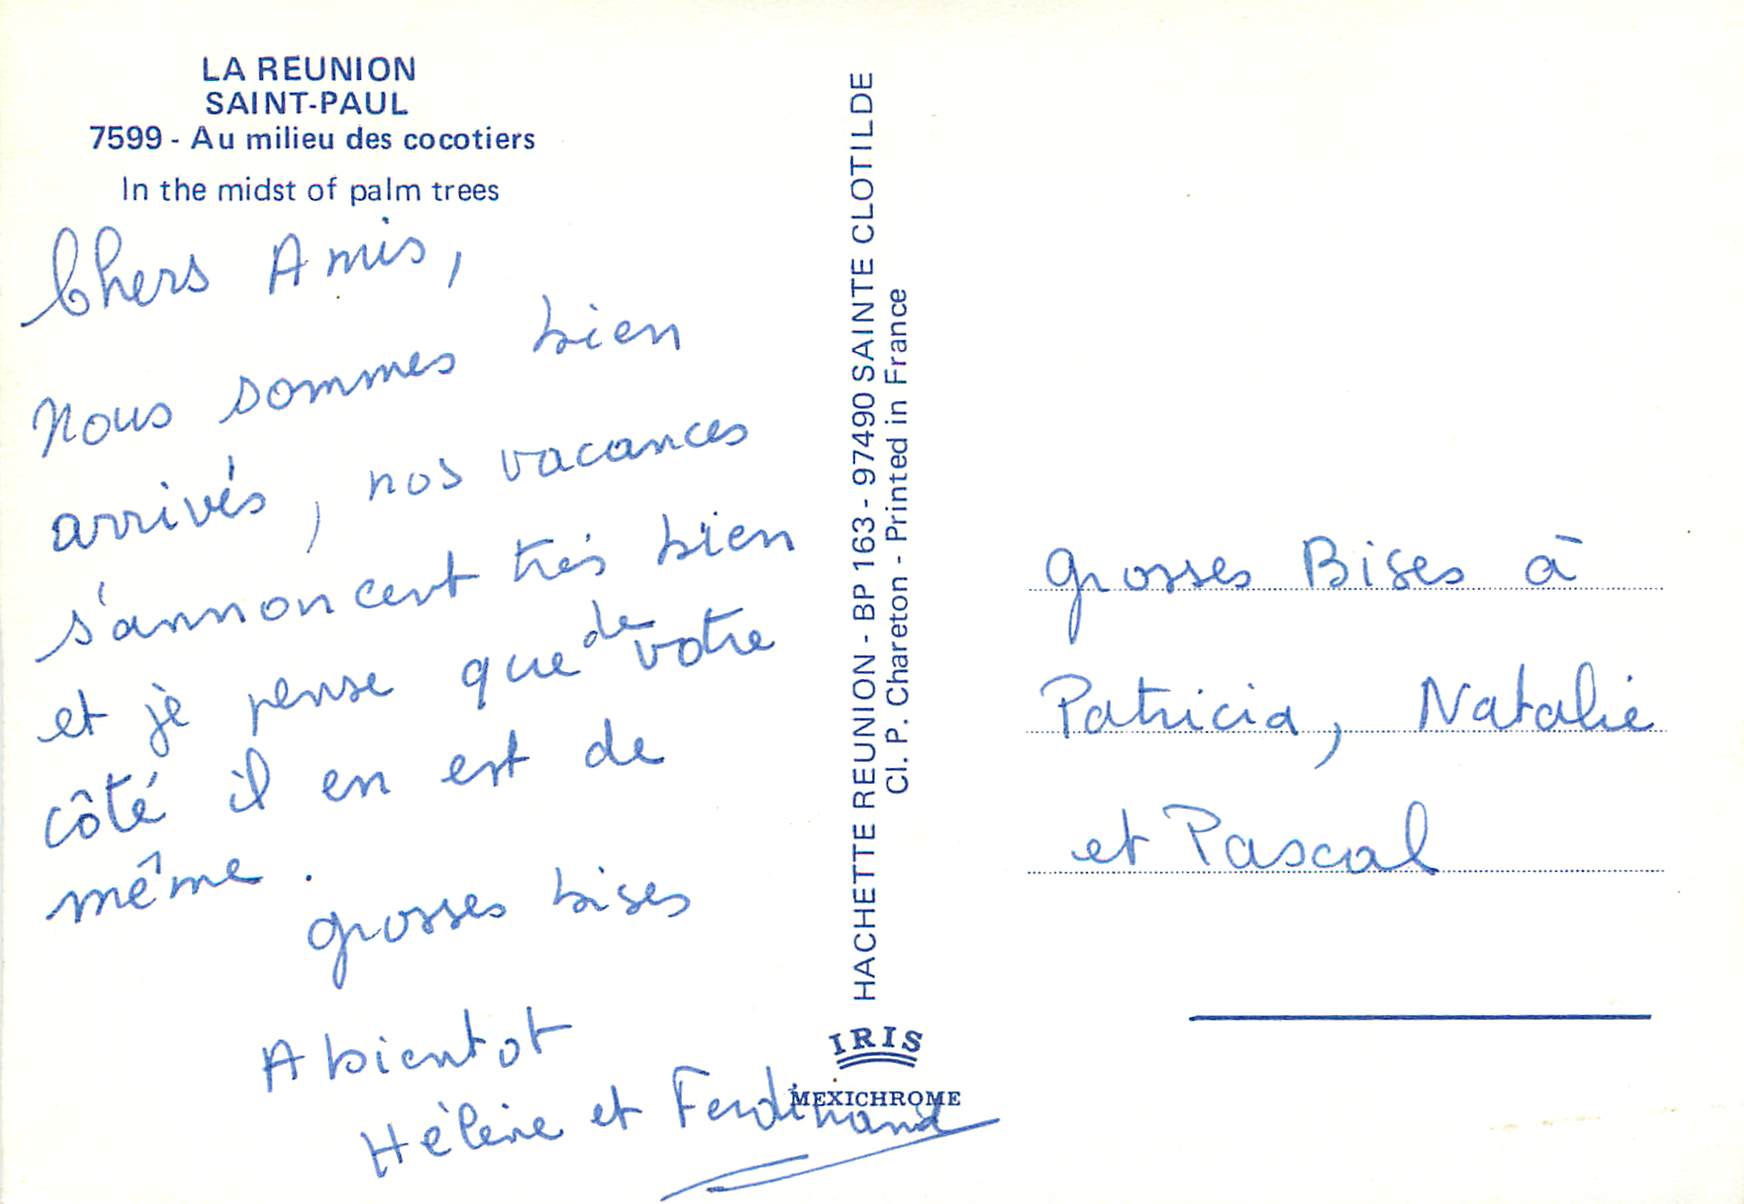 LA REUNION
SAINT-PAUL
7599 - Au milieu des cocotiers
In the midst of palm trees
Chers Amis,
Nous sommes bien
arrivés, nos vacances
s'annoncent très bien
et je pense que de votre
côté il en est de
même.
grosses bises
A bientot
Hélène et Ferdinand
HACHETTE REUNION - BP 163 - 97490 SAINTE CLOTILDE
Cl. P. Chareton - Printed in France
IRIS
MEXICHROME
grosses Bises à
Patricia, Natalie
et Pascal